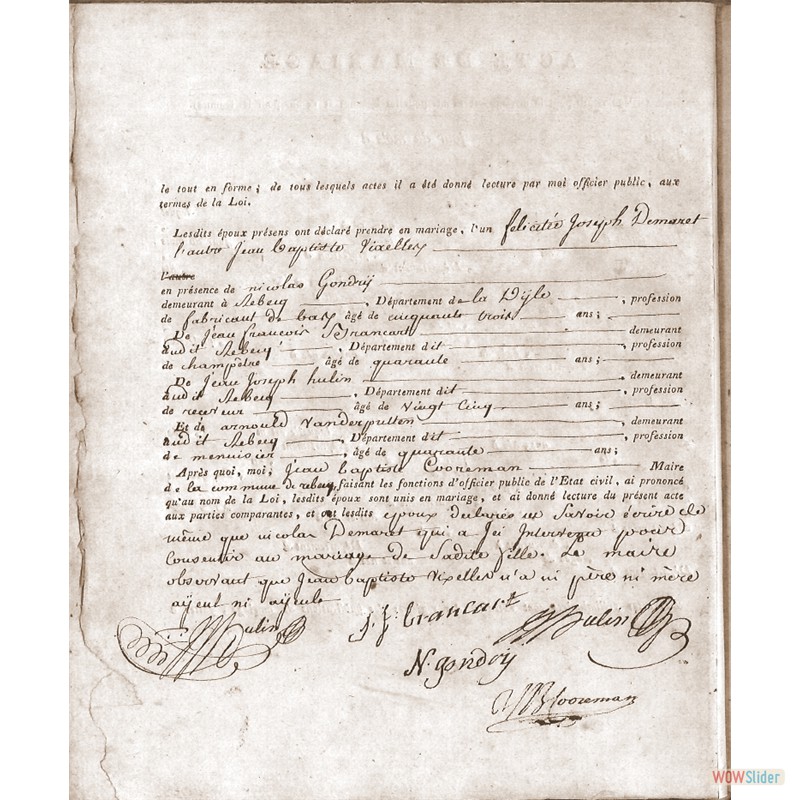 le tout en forme ; de tous lesquels actes il a été donné lecture par moi officier public, aux
termes de la Loi.
Lesdits époux présens ont déclaré prendre en mariage, l'un felicitée Joseph Demaret
l'autre Jean baptiste Vixelles
l'autre
en présence de nicolas Gondrÿ
demeurant à Rebecq , Département de la Dÿle , profession
de fabricant de bas âgé de cinquante trois ans ;
De Jean francois Brancart demeurant
audit Rebecq , Département dit , profession
de champetre âgé de quarante ans ;
De Jean Joseph hulin , demeurant
audit Rebecq , Département dit , profession
de receveur âgé de vingt cinq ans ;
Et de arnould Vanderputten , demeurant
audit Rebecq , Département dit , profession
de menuisier , âgé de quarante ans ;
Après quoi, moi, Jean baptiste Cooreman Maire
de la commune de rebecq, faisant les fonctions d'officier public de l'Etat civil, ai prononcé
qu'au nom de la Loi, lesdits époux sont unis en mariage, et ai donné lecture du présent acte
aux parties comparantes, et ont lesdits epoux declarés ne Savoir écrire de
même que nicolas Demaret qui a Ici Intervenu pour
Consentir au mariage de Sadite fille. Le maire
observant que Jean baptiste Vixelles n'a ni père ni mère
aÿeul ni aÿeule
hulin J. f. brancart hulin
N. gondrÿ
JB Cooreman
WOWSlider